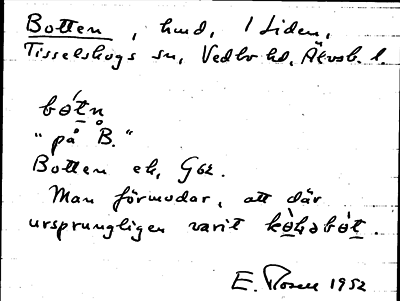 Botten, hmd, I Liden,
Tisselskogs sn, Vedbo hd, Älvsb. l.
bótn
"på B."
Botten ek, G62.
Man förmodar, att där
ursprungligen varit kò̱həbót̠.
E. Rosen 1952